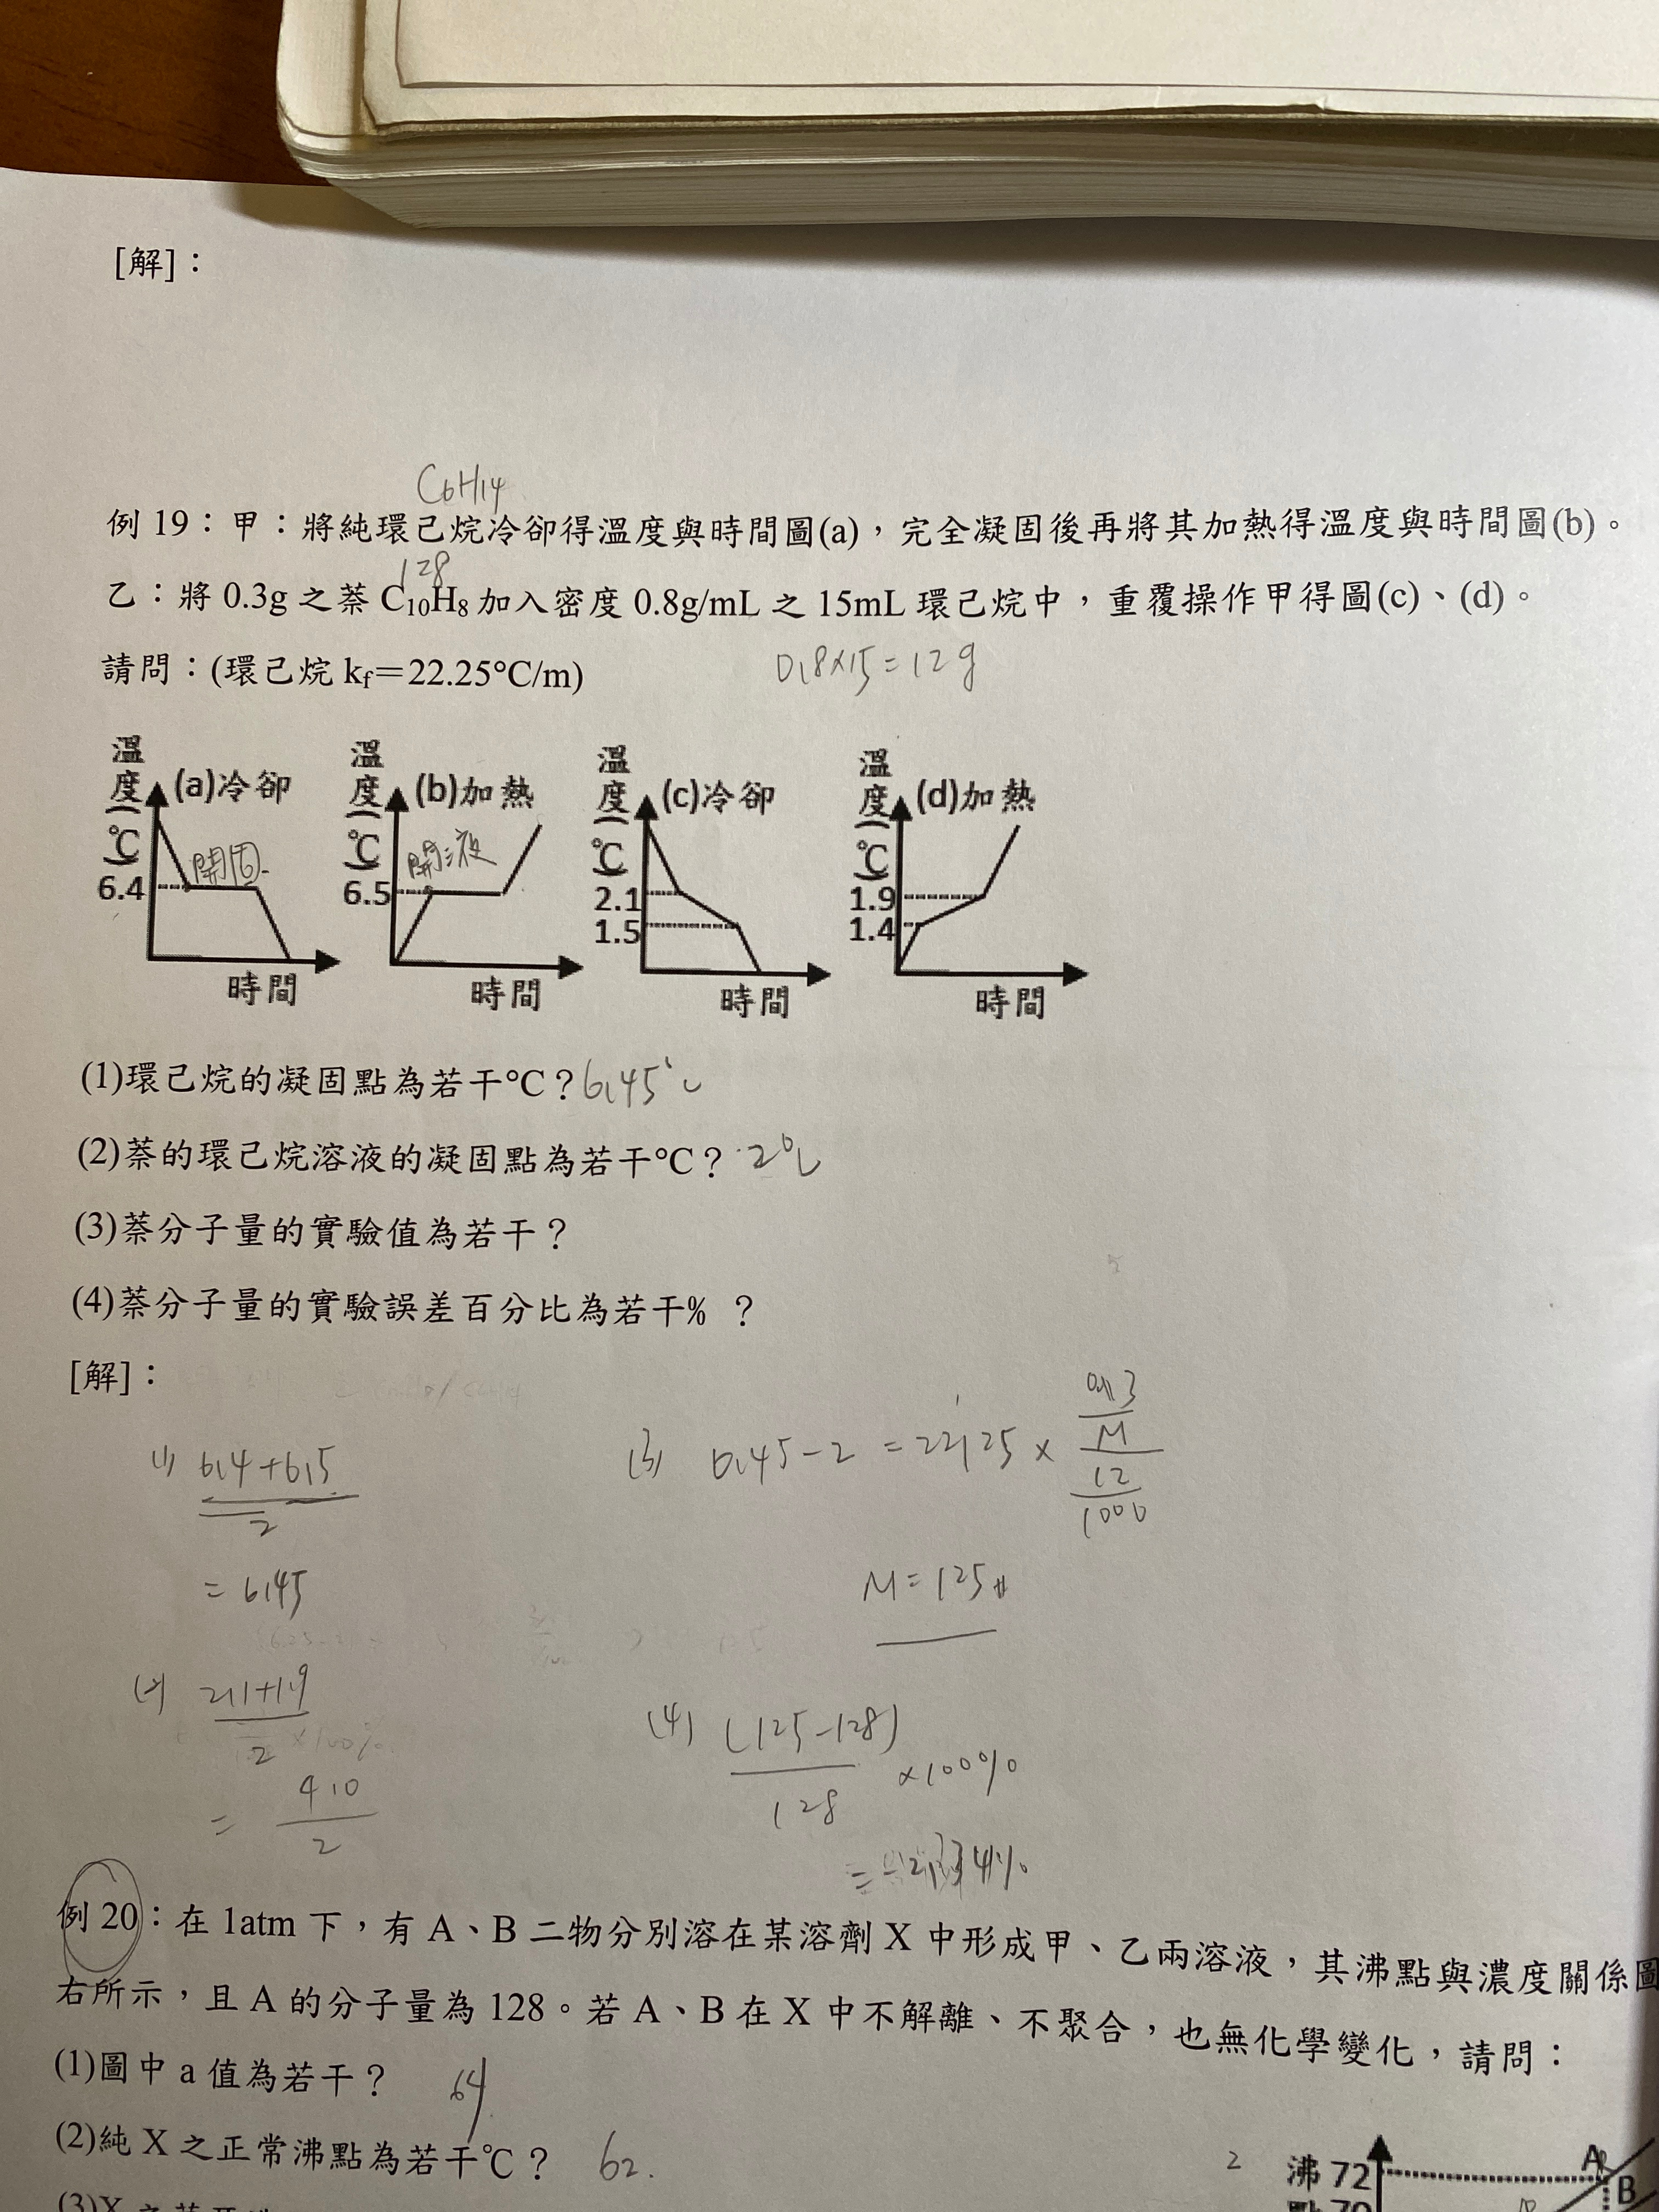 [解]：
C6H14
例 19：甲：將純環己烷冷卻得溫度與時間圖(a)，完全凝固後再將其加熱得溫度與時間圖(b)。
128
乙：將 0.3g 之萘 C₁₀H₈ 加入密度 0.8g/mL 之 15mL 環己烷中，重覆操作甲得圖(c)、(d)。
請問：(環己烷 kf＝22.25°C/m)
0.8×15=12g
溫度(℃) (a)冷卻 開固 6.4 時間
溫度(℃) (b)加熱 開液 6.5 時間
溫度(℃) (c)冷卻 2.1 1.5 時間
溫度(℃) (d)加熱 1.9 1.4 時間
(1)環己烷的凝固點為若干°C？6.45℃
(2)萘的環己烷溶液的凝固點為若干°C？2℃
(3)萘分子量的實驗值為若干？
(4)萘分子量的實驗誤差百分比為若干% ？
[解]：
(1) 6.4+6.5
2
= 6.45
(2) 2.1+1.9
2
= 4.0
2
(3) 6.45-2 = 22.25 ×
0.3
M
12
1000
M=125#
(4) (125-128)
128
×100%
例 20：在 1atm 下，有 A、B 二物分別溶在某溶劑 X 中形成甲、乙兩溶液，其沸點與濃度關係圖
右所示，且 A 的分子量為 128。若 A、B 在 X 中不解離、不聚合，也無化學變化，請問：
(1)圖中 a 值為若干？ 64
(2)純 X 之正常沸點為若干℃？ 62.
2
沸 72 A
點 70 B